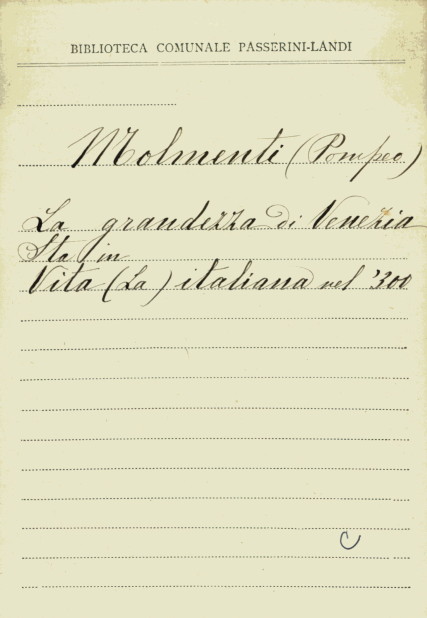 BIBLIOTECA COMUNALE PASSERINI-LANDI
Molmenti (Pompeo)
La grandezza di Venezia
Sta in
Vita (La) italiana nel '300
C